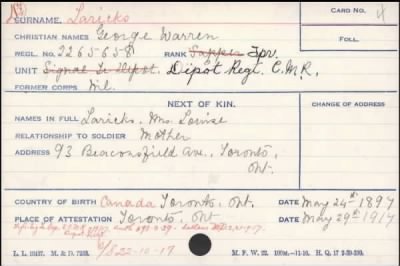 SURNAME. Laricks
CARD NO.
4
CHRISTIAN NAMES George Warren
FOLL.
REGL. NO. 2265658 RANK Sapper Tpr.
UNIT Signal Tr. Depot. Depot Regt. C.M.R.
FORMER CORPS Nil.
NEXT OF KIN.
CHANGE OF ADDRESS
NAMES IN FULL Laricks, Mrs. Louise
RELATIONSHIP TO SOLDIER Mother
ADDRESS 93 Beaconsfield Ave., Toronto,
Ont.
COUNTRY OF BIRTH Canada Toronto, Ont. DATE May 24th 1897
PLACE OF ATTESTATION Toronto, Ont DATE May 29th 1917
22-10-17
L. L. 19437. M. & D. 7253. M. F. W. 22.